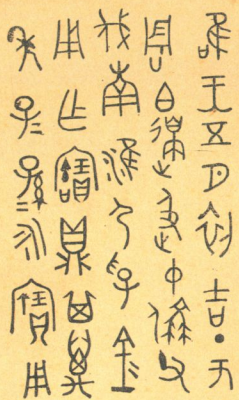 隹王五月初吉丁亥
周白邊及中偁父
伐南淮尸孚金
用乍寶鼎其萬
年子孫永寶用